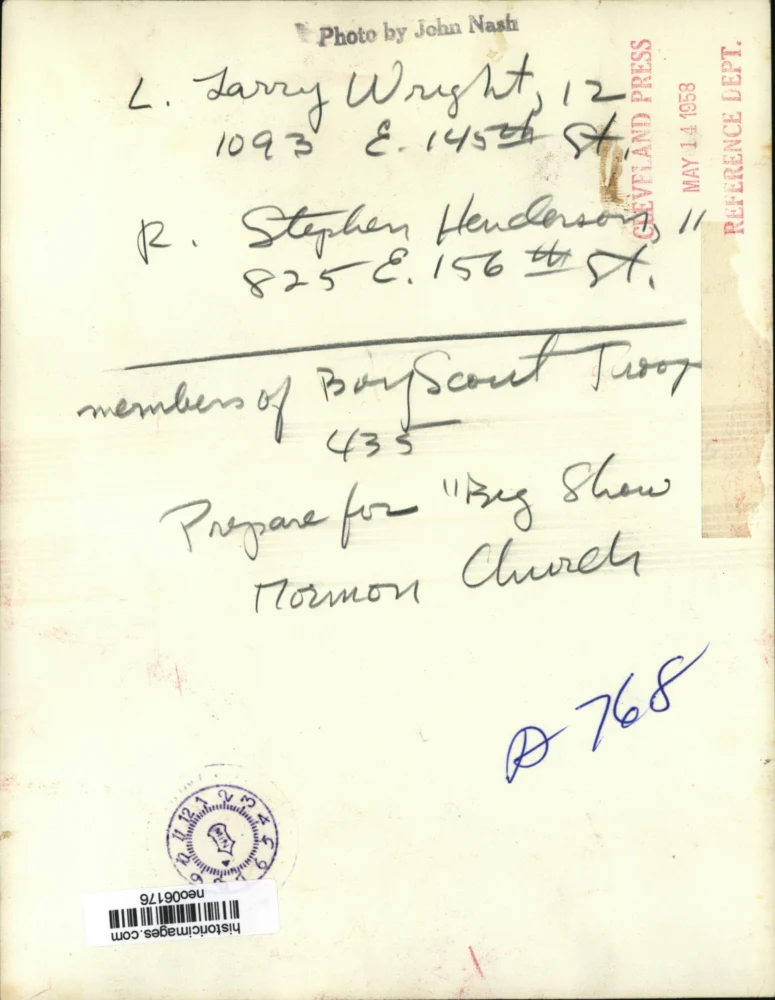 Photo by John Nash
L. Larry Wright, 12
1093 E. 145th St.
R. Stephen Henderson, 11
825 E. 156th St.
members of Boy Scout Troop
435
Prepare for "Big Show
Mormon Church
CLEVELAND PRESS
MAY 14 1958
REFERENCE DEPT.
A 768
12 1 2 3 4 5 6
9 10 11
MIN
historicimages.com
neo06176